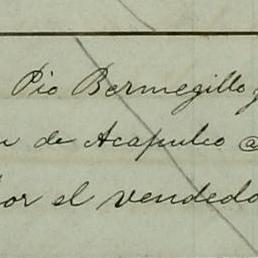 Pio Bermegillo y
de Acapulco @
por el vendedo